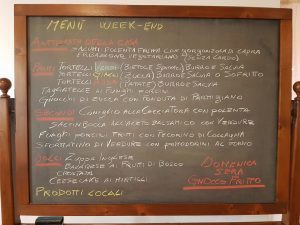 MENÙ WEEK-END
ANTIPASTO DELLA CASA
POLENTA FRITTA CON GORGONZOLA DI CAPRA
VEGETARIANO (SENZA CARNE)
PRIMI TORTELLI VERDI (BIETOLE SPINACI) BURRO E SALVIA
TORTELLI GIALLI (ZUCCA) BURRO E SALVIA O SOFFRITTO
TORTELLI ROSSI BURRO E SALVIA
TAGLIATELLE AI FUNGHI PORCINI
GNOCCHI DI ZUCCA CON FONDUTA DI PARMIGIANO
SECONDI CONIGLIO ALLA CACCIATORA CON POLENTA
SALTIMBOCCA ALL'ACETO BALSAMICO CON VERDURE
FUNGHI PORCINI FRITTI CON PECORINO DI COLLAGNA
SFORMATINO DI VERDURE CON POMODORINI AL FORNO
DOLCI ZUPPA INGLESE
BAVARESE AI FRUTTI DI BOSCO
CROSTATA
CEESECAKE AI MIRTILLI
PRODOTTI LOCALI
DOMENICA
SERA
GNOCCO FRITTO